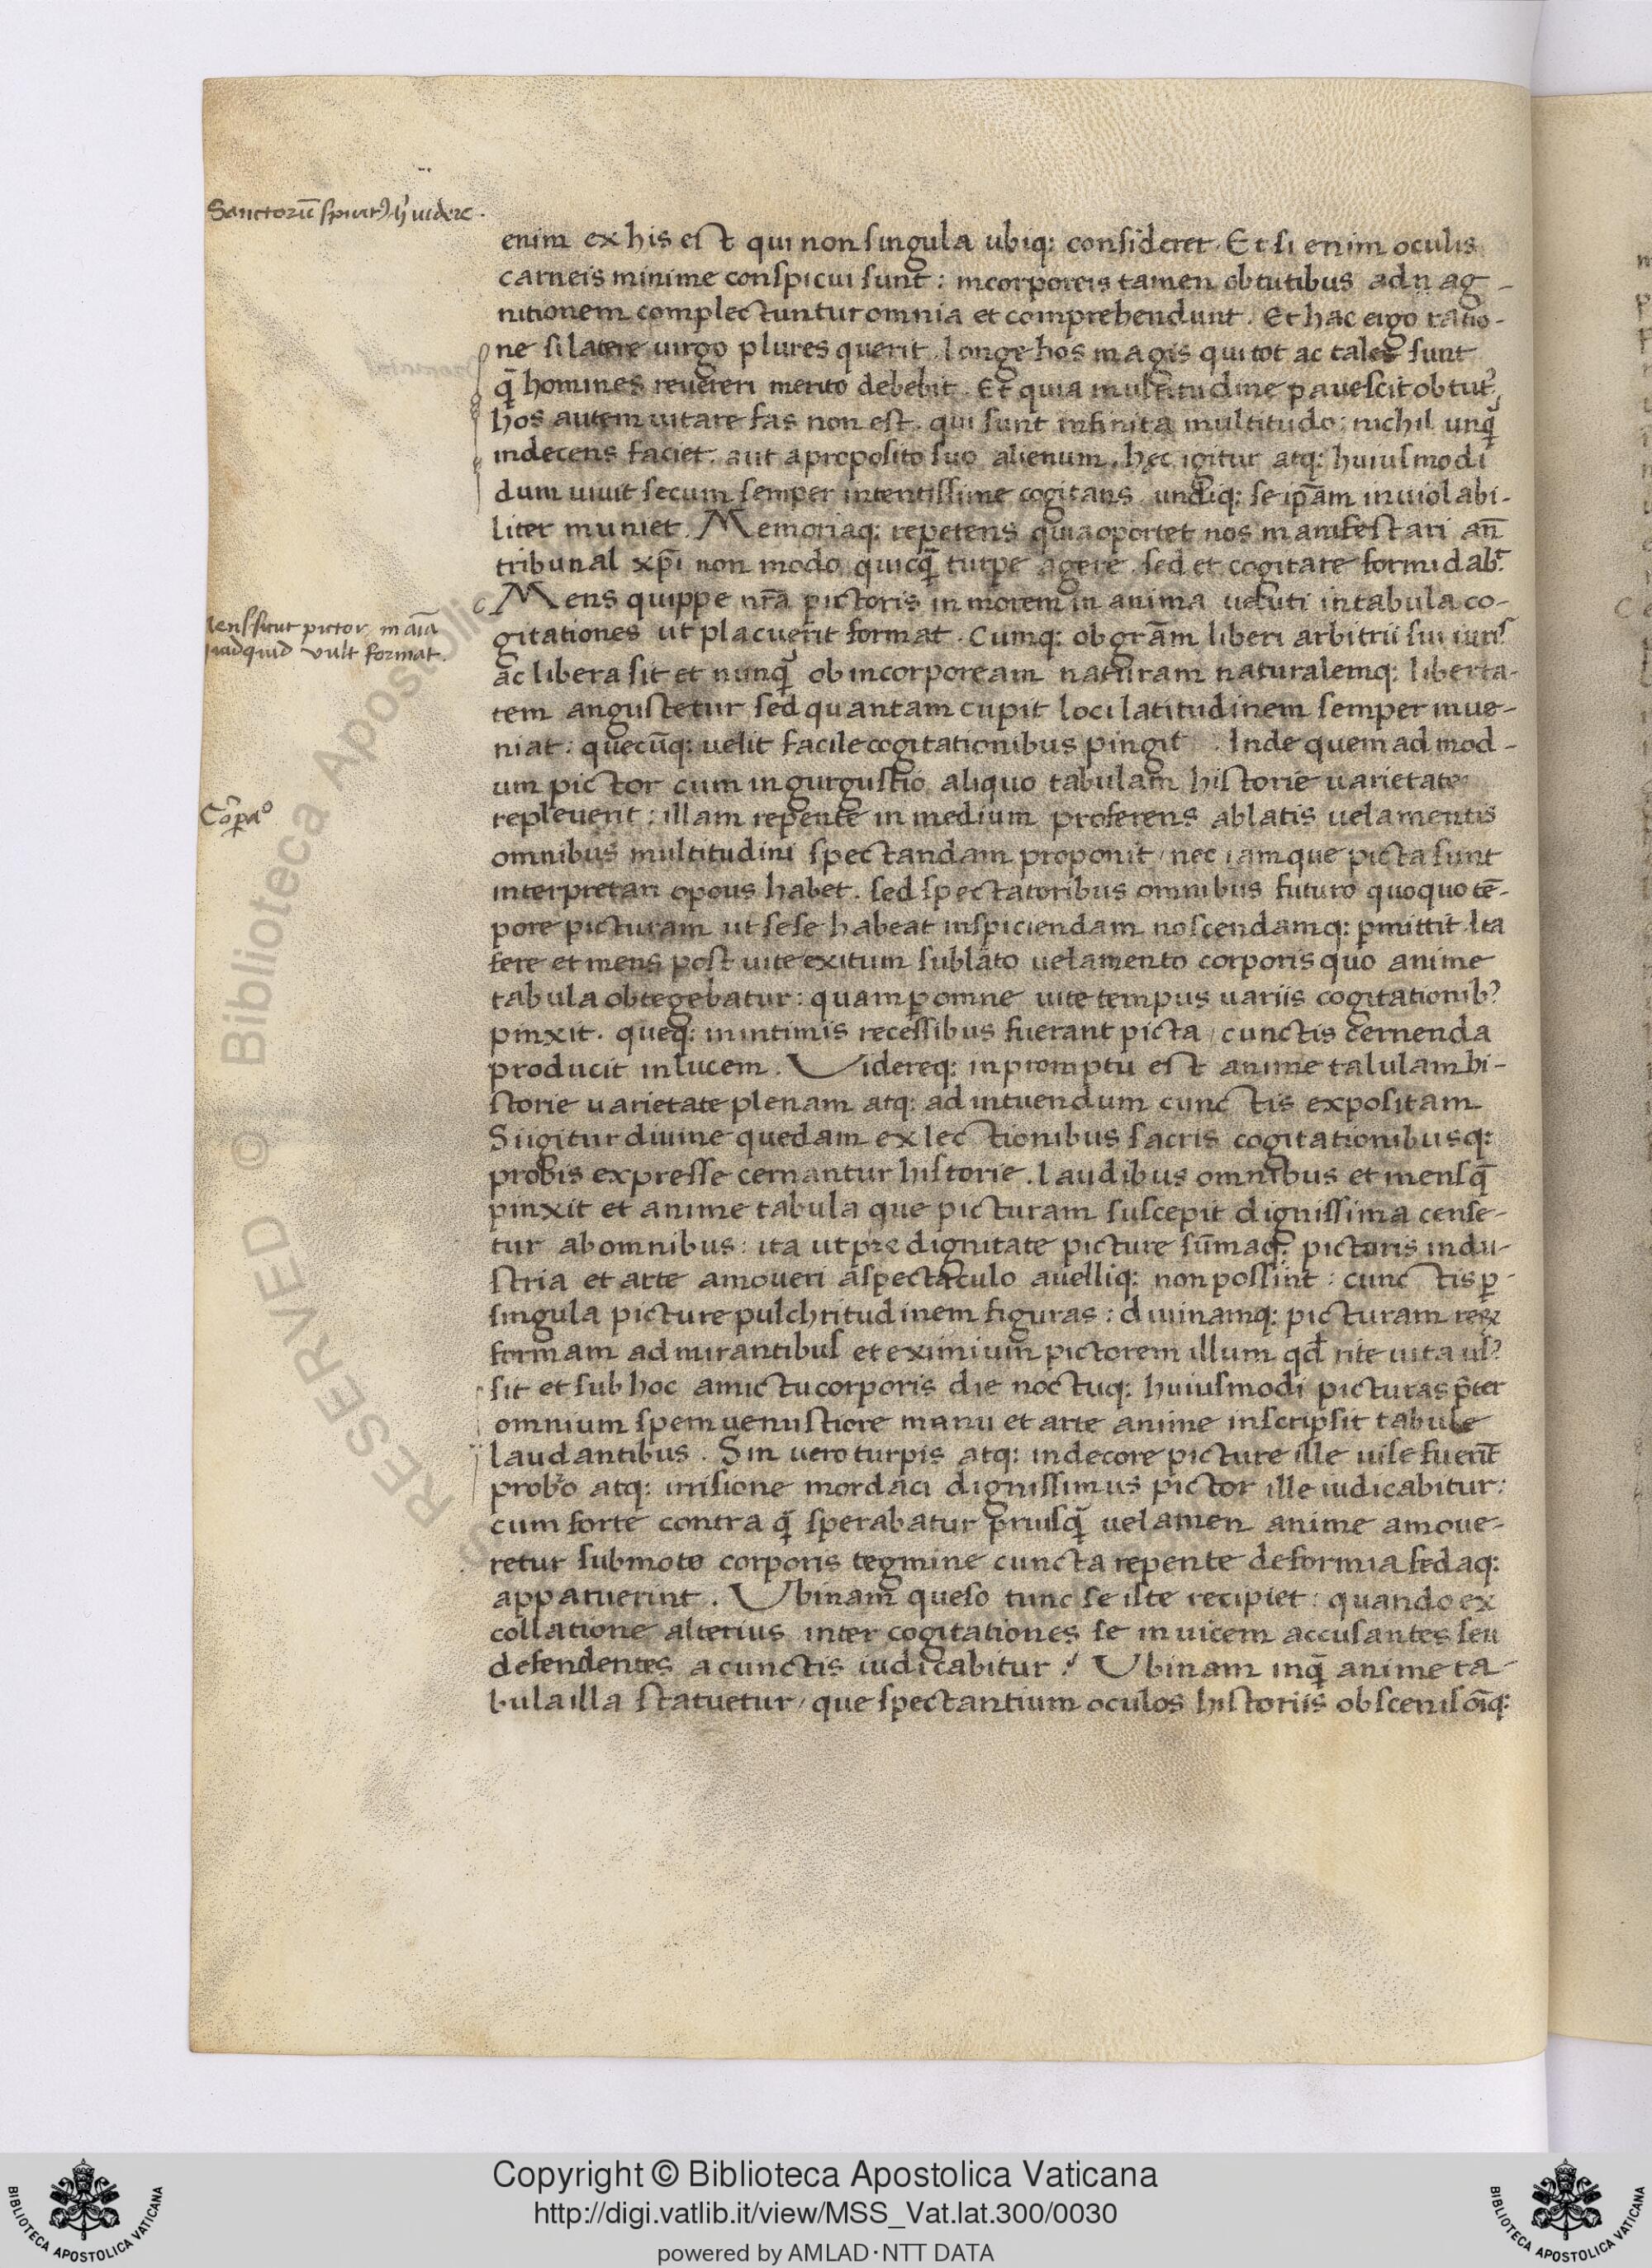 Sanctorū spirit⁹ hĩ uidere.
enim ex his est qui non singula ubiq: consideret. Et si enim oculis
carneis minime conspicui sunt: incorporeis tamen obtutibus ad ag-
nitionem complectuntur omnia et comprehendunt. Et hac ergo ratio-
ne si latere uirgo plures querit. longe hos magis qui tot ac tales sunt
q̄ homines reuereri merito debebit. Et quia multitudine pauescit obtut⁹,
hos autem uitare fas non est. qui sunt infinita multitudo: nichil unq̄
indecens faciet. aut a proposito suo alienum. hęc igitur atq: huiusmodi
dum uiuit secum semper intentissime cogitans. undiq: se ip̄am inuiolabi-
liter muniet. Memoriaq: repetens quia oportet nos manifestari an̄
tribunal xp̄i non modo quicq̄ turpe agere. sed et cogitare formidab̄t
Mens quippe nr̄a pictoris in morem in anima ueluti in tabula co-
gitationes ut placuerit format. Cumq: ob gr̄am liberi arbitrii sui iuris
mens sicut pictor in aīa
quidquid vult format.
ac libera sit et nunq̄ ob incorpoream naturam naturalemq: liberta-
tem angustetur sed quantam cupit loci latitudinem semper inue-
niat: quecūq: uelit facile cogitationibus pingit. Inde quemadmod-
um pictor cum in gurgustio aliquo tabulam historie uarietate
repleuerit: illam repente in medium proferens ablatis uelamentis
Cōpa°
omnibus multitudini spectandam proponit, nec iam que picta sunt
interpretari opous habet. sed spectatoribus omnibus futuro quoquo tē-
pore picturam ut sese habeat inspiciendam noscendamq: p̱mittit. Ita
fere et mens post uite exitum sublato uelamento corporis quo anime
tabula obtegebatur: quam p̱ omne uite tempus uariis cogitationib⁹
pinxit. queq: in intimis recessibus fuerant picta, cunctis cernenda
producit in lucem. Videreq: in promptu est anime talulam hi-
storie uarietate plenam atq: ad intuendum cunctis expositam
Si igitur diuine quedam ex lectionibus sacris cogitationibusq:
probis expresse cernantur historie. laudibus omnibus et mens q̄
pinxit et anime tabula que picturam suscepit dignissima cense-
tur ab omnibus: ita ut pre dignitate picture sūmaq: pictoris indu-
stria et arte amoueri a spectaculo auelliq: non possint: cunctis p̱
singula picture pulchritudinem figuras: diuinamq: picturam reꝝ
formam admirantibus et eximium pictorem illum qd̄ rite uita us⁹
sit et sub hoc amictu corporis die noctuq: huiusmodi picturas p̄ter
omnium spem uenustiore manu et arte anime inscripsit tabule
laudantibus. Sin uero turpis atq: indecore picture ille uise fuerīt
probro atq: irrisione mordaci dignissimus pictor ille iudicabitur:
cum forte contra q̄ sperabatur priusq̄ uelamen anime amoue-
retur submoto corporis tegmine cuncta repente deformia fedaq:
apparuerint. Vbinam queso tunc se iste recipiet: quando ex
collatione alterius inter cogitationes se inuicem accusantes seu
defendentes a cunctis iudicabitur? Vbinam inq̄ anime ta-
bula illa statuetur, que spectantium oculos historiis obscenis oīq:
RESERVED © Biblioteca Apostolic
Copyright © Biblioteca Apostolica Vaticana
http://digi.vatlib.it/view/MSS_Vat.lat.300/0030
powered by AMLAD·NTT DATA
BIBLIOTECA APOSTOLICA VATICANA
BIBLIOTECA APOSTOLICA VATICANA